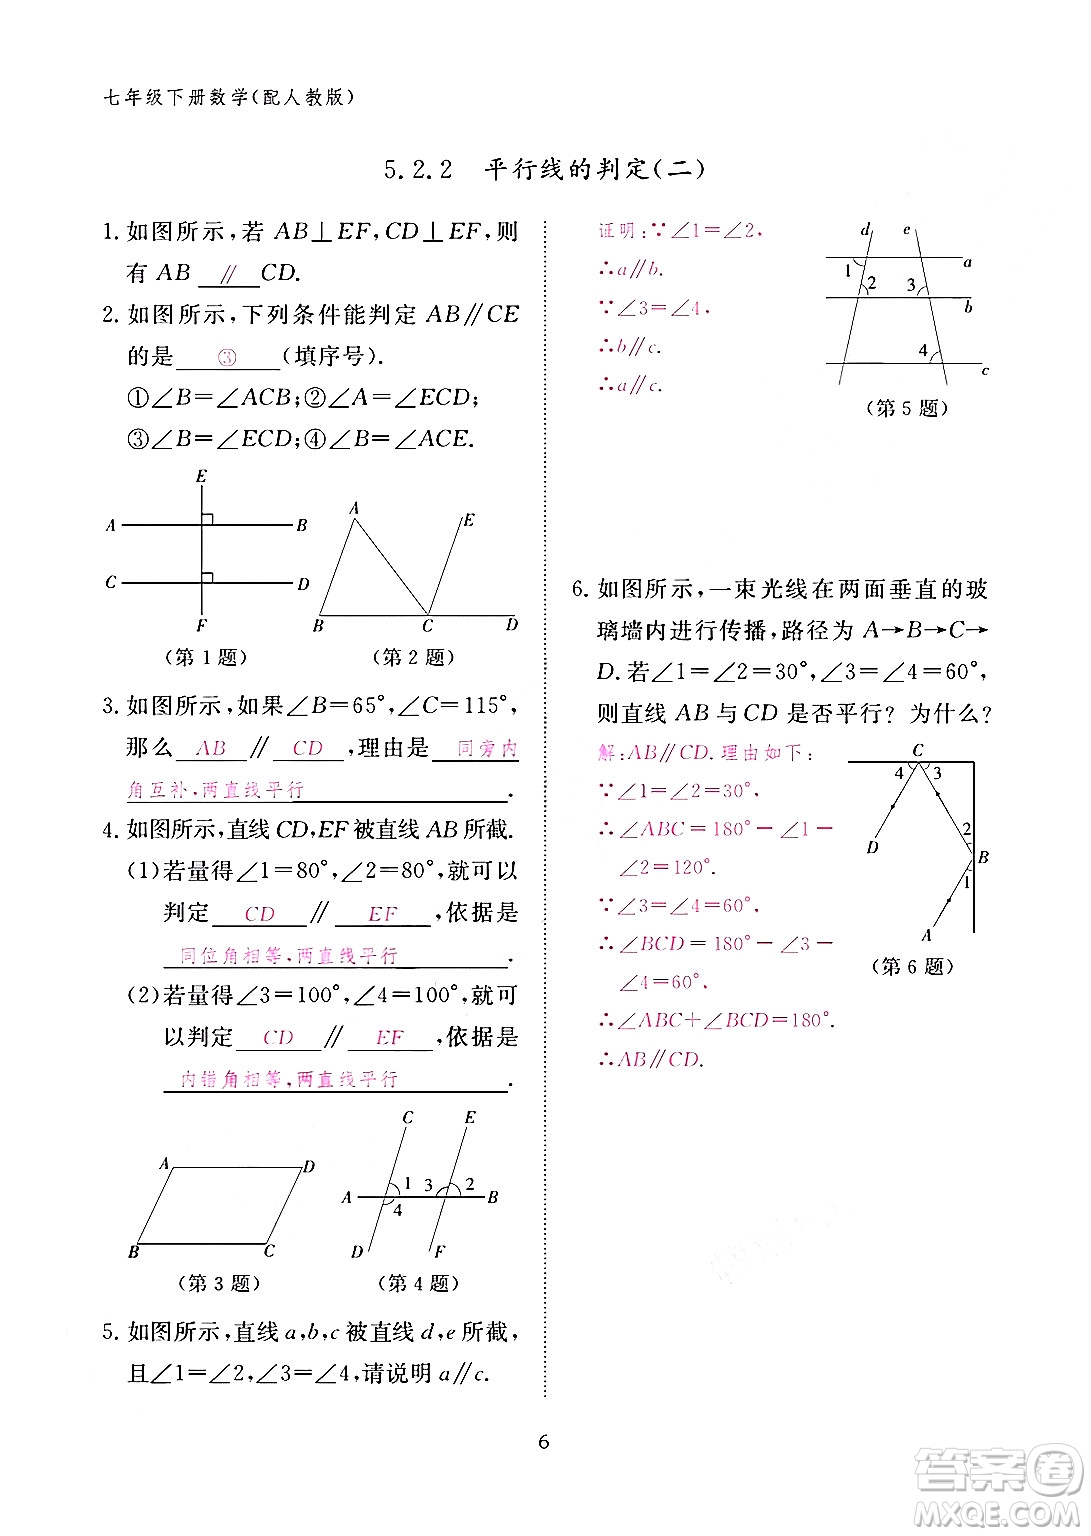 七年级下册数学(配人教版)
5.2.2 平行线的判定(二)
1. 如图所示,若 AB⊥EF,CD⊥EF,则
有 AB ∥ CD.
2. 如图所示,下列条件能判定 AB∥CE
的是 ③ (填序号).
①∠B=∠ACB;②∠A=∠ECD;
③∠B=∠ECD;④∠B=∠ACE.
E
A B
C D
F
A E
B C D
(第 1 题) (第 2 题)
3. 如图所示,如果∠B=65°,∠C=115°,
那么 AB ∥ CD ,理由是 同旁内
角互补,两直线平行 .
4. 如图所示,直线 CD,EF 被直线 AB 所截.
(1)若量得∠1=80°,∠2=80°,就可以
判定 CD ∥ EF ,依据是
同位角相等,两直线平行 .
(2)若量得∠3=100°,∠4=100°,就可
以判定 CD ∥ EF ,依据是
内错角相等,两直线平行 .
A D
B C
C E
A 1 3 2 B
4
D F
(第 3 题) (第 4 题)
5. 如图所示,直线 a,b,c 被直线 d,e 所截,
且∠1=∠2,∠3=∠4,请说明 a∥c.
证明:∵∠1=∠2,
∴a∥b.
∵∠3=∠4,
∴b∥c.
∴a∥c.
d e
1 a
2 3
b
4
c
(第 5 题)
6. 如图所示,一束光线在两面垂直的玻
璃墙内进行传播,路径为 A→B→C→
D.若∠1=∠2=30°,∠3=∠4=60°,
则直线 AB 与 CD 是否平行? 为什么?
解:AB∥CD.理由如下:
∵∠1=∠2=30°,
∴∠ABC=180°-∠1-
∠2=120°.
∵∠3=∠4=60°,
∴∠BCD=180°-∠3-
∠4=60°.
∴∠ABC+∠BCD=180°.
∴AB∥CD.
C
4 3
D 2
B
1
A
(第 6 题)
6
答案卷
MXQE.COM